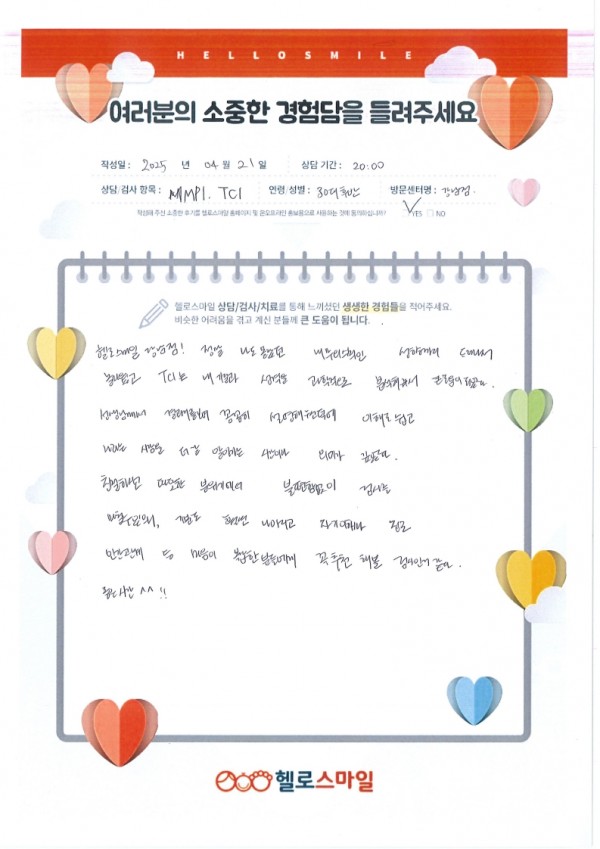 HELLOSMILE
여러분의 소중한 경험담을 들려주세요
작성일 : 2025 년 04 월 21 일 상담 기간 : 20:00
상담/검사 항목 : MMPI. TCI 연령/성별 : 30대 방문센터명 : 강남점.
작성해 주신 소중한 후기를 헬로스마일 홈페이지 및 온오프라인 홍보용으로 사용하는 것에 동의하십니까? YES NO
헬로스마일 상담/검사/치료를 통해 느끼셨던 생생한 경험들을 적어주세요.
비슷한 어려움을 겪고 계신 분들께 큰 도움이 됩니다.
헬로스마일 강남점! 정말 나도 몰랐던 내 무의식적인 성향까지
TCI는 내 기질과 성격을 과학적으로 분석해줘서
선생님께서 결과를 꼼꼼히 설명해주신덕에 이해도 쉽고
나라는 사람을 더 잘 알아가는 시간이라 의미가
친절하고 따뜻한 분위기에서 불편함없이 검사를
마칠 수 있었고, 기분도 훨씬 나아지고 진로
인간관계 등 마음이 복잡한 분들에게 꼭 추천 해볼
^^ !!
헬로스마일